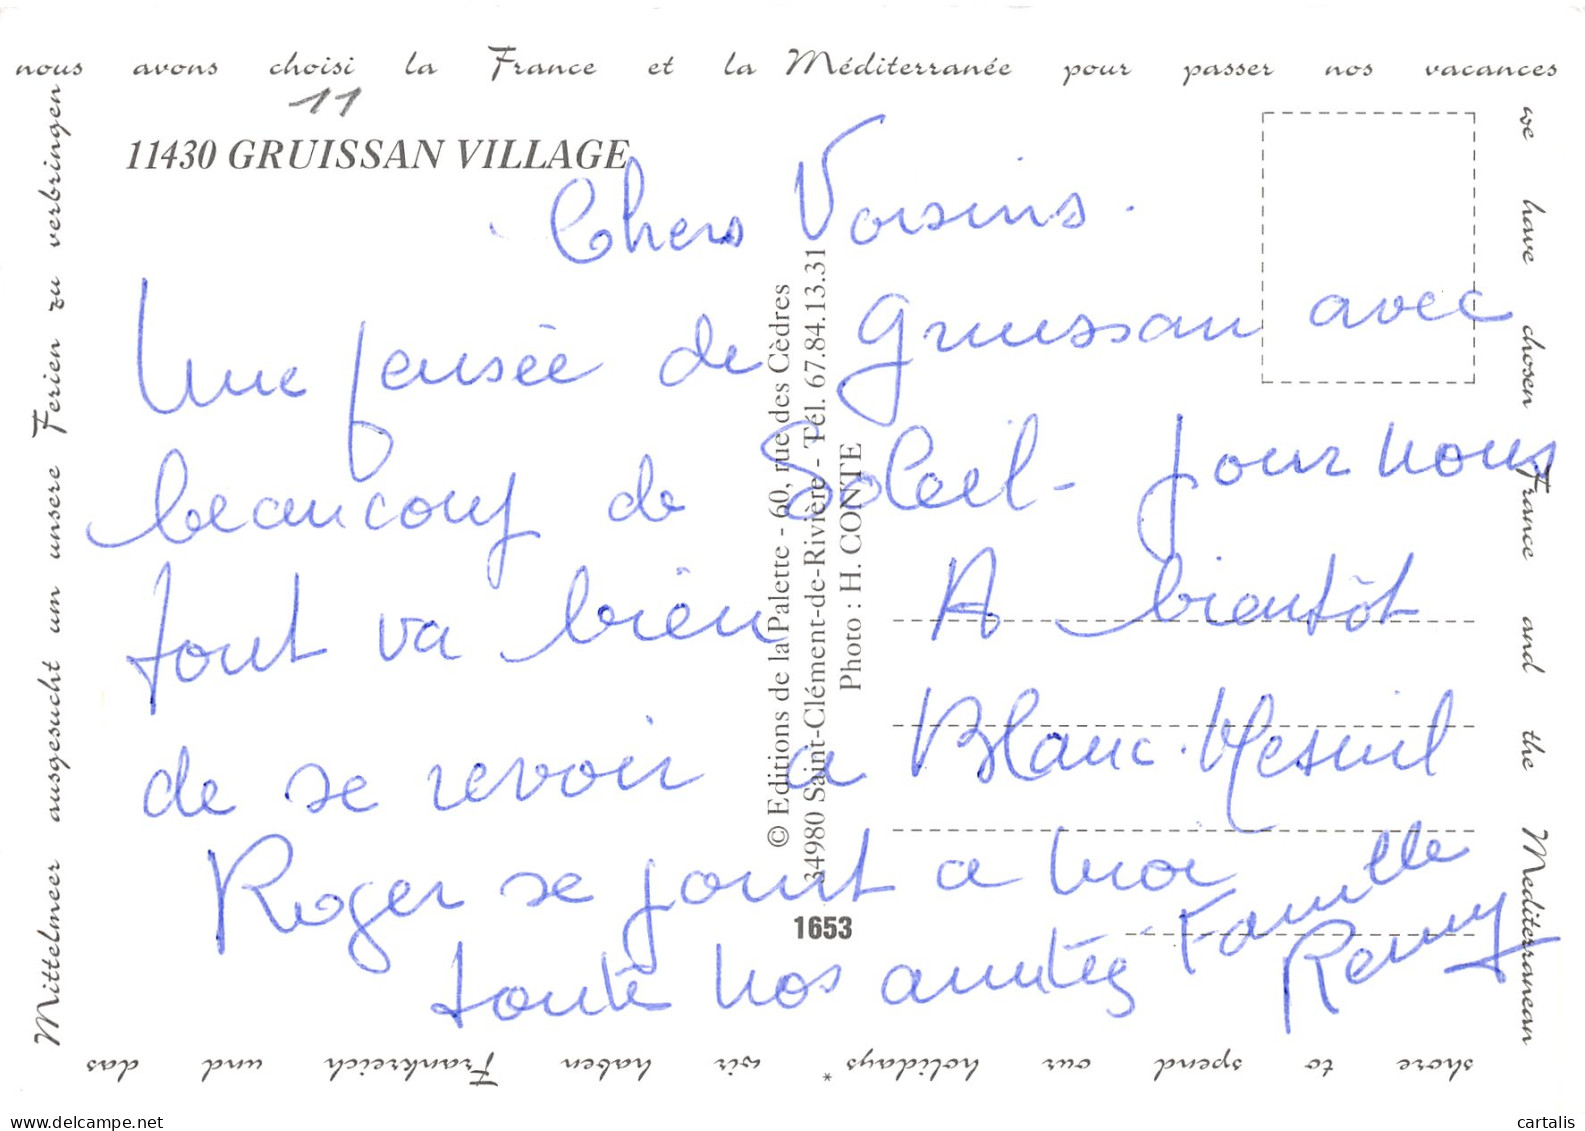 nous avons choisi la France et la Méditerranée pour passer nos vacances
11
11430 GRUISSAN VILLAGE
Chers Voisins.
Une pensée de Gruissan avec
beaucoup de Soleil - pour nous
tout va bien A bientôt
de se revoir a Blanc-Mesnil
Roger se joint a moi
toute nos amitiés Famille
Remy
© Editions de la Palette - 60, rue des Cèdres
34980 Saint-Clément-de-Rivière - Tél. 67.84.13.31
Photo : H. CONTE
1653
we have chosen France and the Mediterranean
shore to spend our holidays * wir haben Frankreich und das
Mittelmeer ausgesucht um unsere Ferien zu verbringen
www.delcampe.net
cartalis